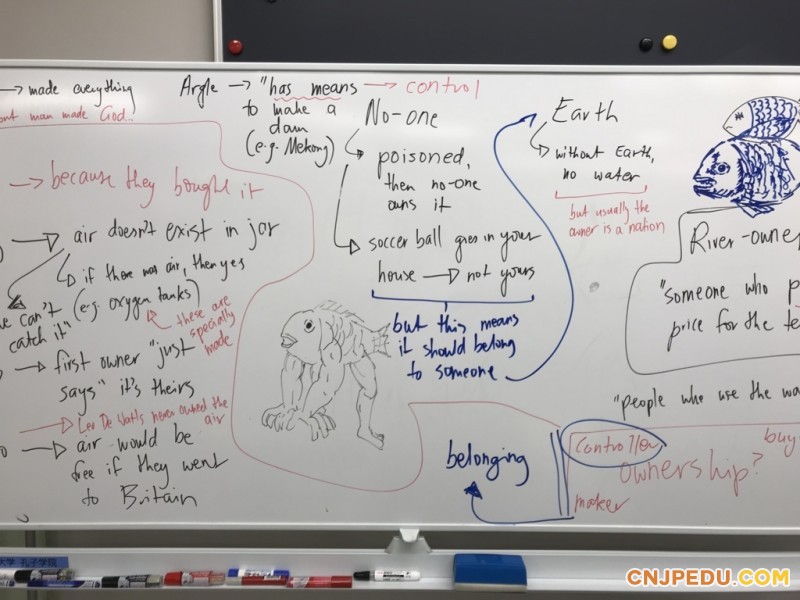 → made everything
but man made God...
→ because they bought it
→ air doesn't exist in jar
↳ if there was air, then yes
(e.g. oxygen tanks)
these are
specially
made
can't
catch it"
→ first owner "just
says" it's theirs
→ never owned the
air
→ air would be
free if they went
to Britain
Argle → "has means → control
to make a
dam
(e.g. Mekong)
No-one
poisoned,
then no-one
owns it
soccer ball goes in your
house → not yours
but this means
it should belong
to someone
belonging
Earth
without Earth,
no water
but usually the
owner is a nation
River-owner
"someone who p
price for the te
"people who use the wa
control/er
buy
ownership?
maker
大学 孔子学院
CNJPEDU.COM